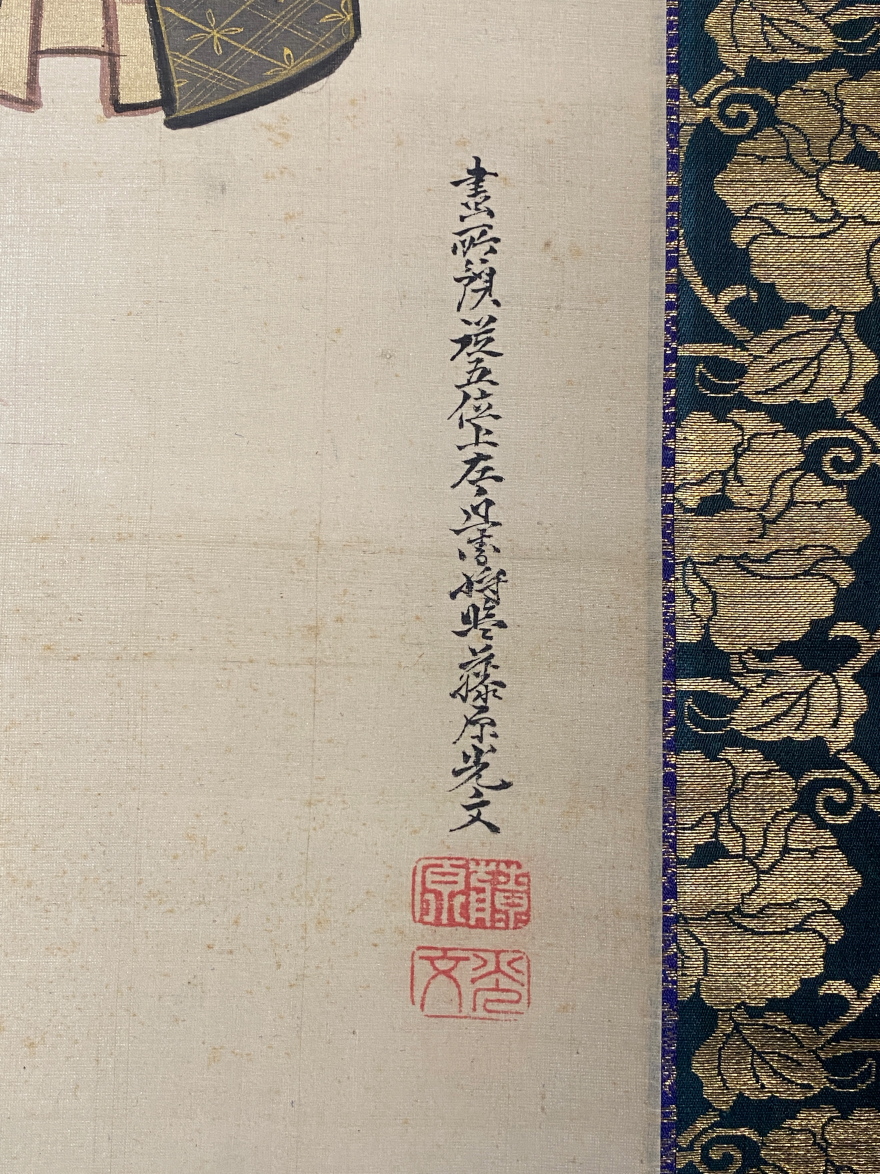 畫所預從五位上左近衛將監藤原光文
藤原
光文